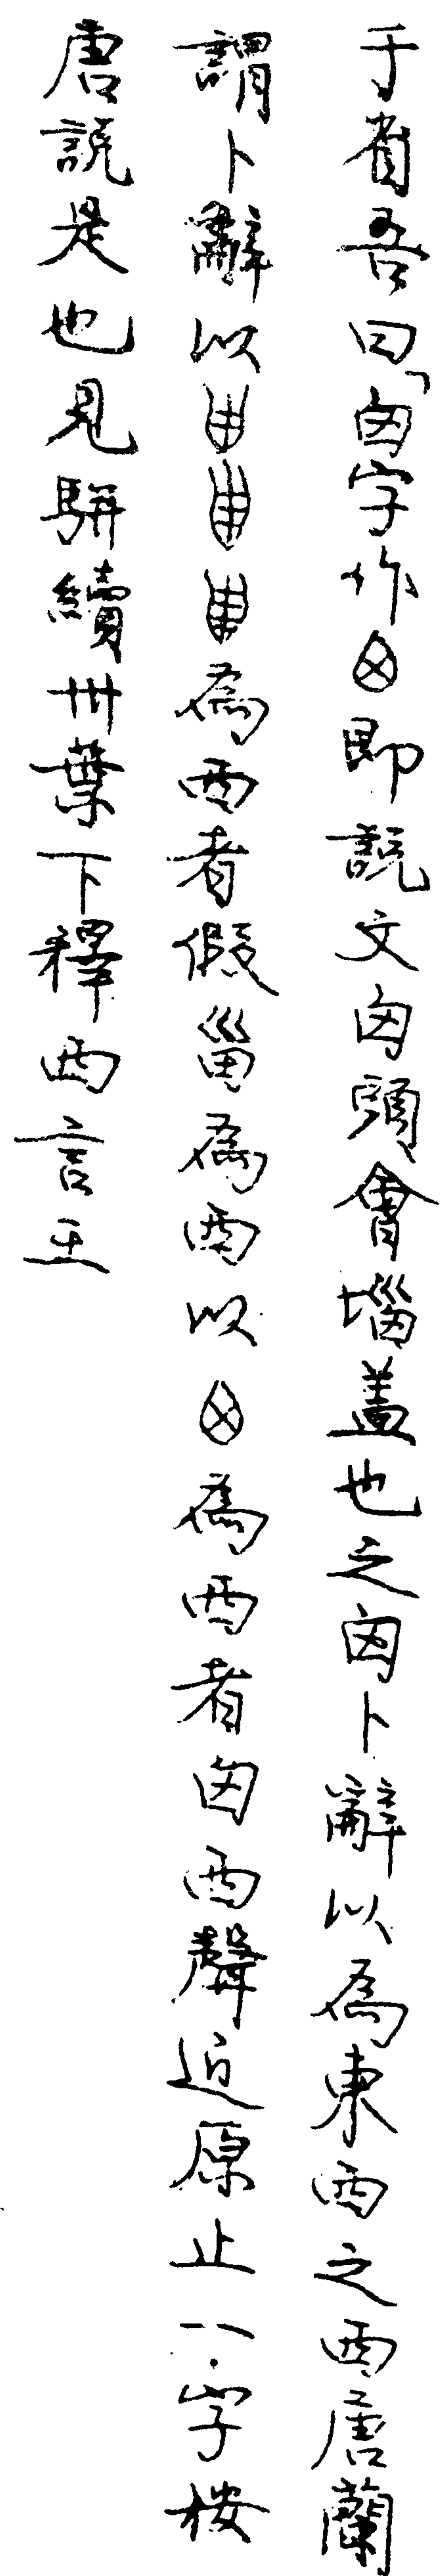 于省吾曰「囟字作即說文囟頭會堖蓋也之囟卜辭以為東西之西唐蘭
謂卜辭以為西者假甾為西以為西者囟西聲近原止一字桉
唐說是也見駢續卅葉下釋西言王